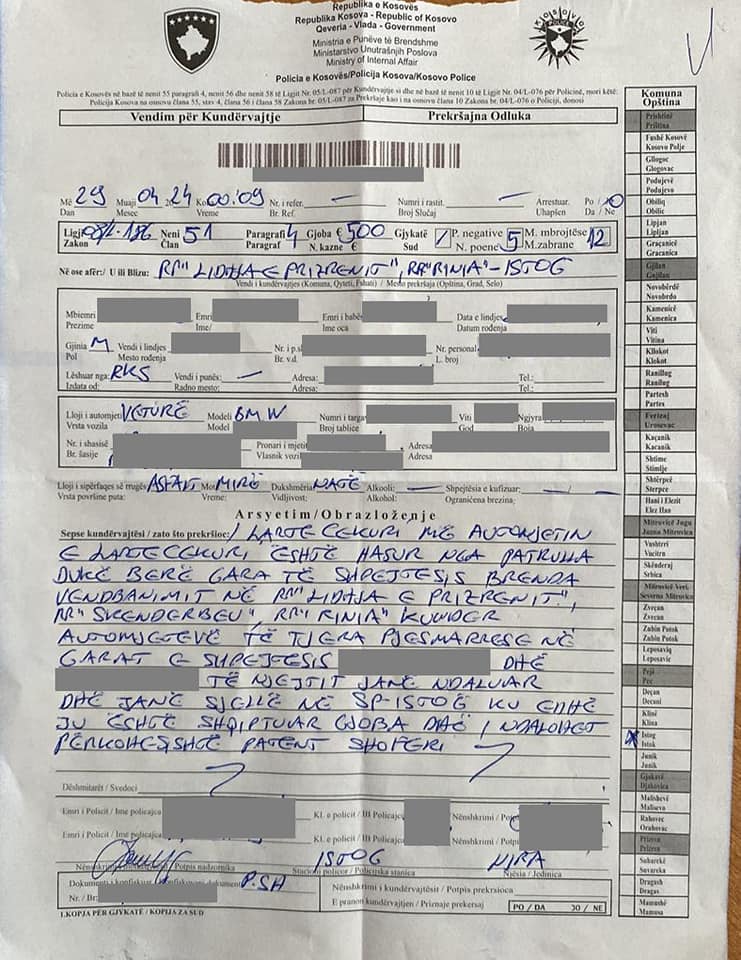 Republika e Kosovës
Republika Kosova - Republic of Kosovo
Qeveria - Vlada - Government
Ministria e Punëve të Brendshme
Ministarstvo Unutrašnjih Poslova
Ministry of Internal Affair
Policia e Kosovës/Policija Kosova/Kosovo Police
Policia e Kosovës në bazë të nenit 55 paragrafi 4, nenit 56 dhe nenit 58 të Ligjit Nr. 05/L-087 për Kundërvajtje si dhe në bazë të nenit 10 të Ligjit Nr. 04/L-076 për Policinë, mori këtë:
Policija Kosova na osnovu člana 55, stav 4, člana 56 i člana 58 Zakona br. 05/L-087 za Prekršaje kao i na osnovu člana 10 Zakona br. 04/L-076 o Policiji, donosi
Vendim për Kundërvajtje Prekršajna Odluka
Më 29 Muaji 04 24 Ko 00:09 Nr. i refer. — Numri i rastit. — Arrestuar. Po / Jo
Dan Mesec Vreme Br. Ref. Broj Slučaj Uhapšen Da / Ne
Ligji 08/L-186 Neni 51 Paragrafi 4 Gjoba € 500 Gjykatë / P. negative 5 M. mbrojtëse 12
Zakon Član Paragraf N. kazne € Sud N. poene M.zabrane
Në ose afër:/ U ili Blizu: RR" LIDHJA E PRIZRENIT", RR"RINIA" - ISTOG
Vendi i kundërvajtjes (Komuna, Qyteti, Fshati) / Mesto prekršaja (Opština, Grad, Selo)
Mbiemri Emri Emri i babës Data e lindjes
Prezime Ime/ Ime oca Datum rođenja
Gjinia M Vendi i lindjes Nr. i p.sh Nr. personal
Pol Mesto rođenja Br. v.d. L. broj
Lëshuar nga: RKS Vendi i punës: — Adresa: Tel.:
Izdata od: Radno mesto: Adresa: Tel.:
Lloji i automjeti VETURË Modeli BMW Numri i targa Viti Ngjyra
Vrsta vozila Model Broj tablice God Boja
Nr. i shasisë Pronari i mjetit Adresa
Br. šasije Vlasnik vozi Adresa
Lloji i sipërfaqes së rrugës ASFALT Mot MIRË Dukshmëria NATË Alkooli: — Shpejtësia e kufizuar: —
Vrsta površine puta: Vreme: Vidljivost: Alkohol: Ograničena brezina:
Arsyetim/Obrazloženje
Sepse kundërvajtësi / zato što prekršioc: I LARTË CEKURI ME AUTOMJETIN
E LARTË CEKURI ËSHTË HASUR NGA PATRULLA
DUKË BËRË GARA TË SHPEJTESIS BRENDA
VENDBANIMIT NË RR"LIDHJA E PRIZRENIT",
RR" SKENDERBEU", RR"RINIA" KUNDER
AUTOMJETEVË TË TJERA PJESMARRESE NË
GARAT E SHPEJTESIS DHË
TË NJEJTIT JANË NDALUAR
DHË JANË SJELLË NË SP-ISTOG KU EDHË
JU ËSHTË SHQIPTUAR GJOBA DHË I NDALOHET
PËRKOHESISHTË PATENT SHOFERI
Dëshmitarët / Svedoci
Emri i Policit / Ime policajca Kl. e policit / ID Policajca Nënshkrimi / Potpis
Emri i Policit / Ime policajca Kl. e policit / ID Policajca Nënshkrimi / Potpis
ISTOG NJRA
Potpis nadzornika Stacioni policor / Policijska stanica Njësia / Jedinica
Dokumenti i konfiskuar P.SH Nënshkrimi i kundërvajtësit / Potpis prekrsioca
Nr. / Br: E pranon kundërvajtjen / Priznaje prekersaj PO / DA JO / NE
1.KOPJA PËR GJYKATË / KOPIJA ZA SUD
Komuna
Opština
Prishtinë
Priština
Fushë Kosovë
Kosovo Polje
Gllogoc
Glogovac
Podujevë
Podujevo
Obiliq
Obilic
Lipjan
Lipljan
Graçanicë
Gracanica
Gjilan
Gnjilan
Novobërdë
Novobrdo
Kamenicë
Kamenica
Viti
Vitina
Kllokot
Klokot
Ranillug
Ranilug
Partesh
Partes
Ferizaj
Urosevac
Kaçanik
Kacanik
Shtime
Stimlje
Shtërpcë
Sterpce
Hani i Elezit
Elez Han
Mitrovicë Jugu
Juzna Mitrovica
Vushtrri
Vucitrn
Skënderaj
Srbica
Mitrovicë Veri
Severna Mitrovica
Zveçan
Zvecan
Zubin Potok
Zubin Potok
Leposaviq
Leposavic
Pejë
Pec
Deçan
Decani
Klinë
Klina
Istog
Istok
Junik
Junik
Gjakovë
Djakovica
Malishevë
Malisevo
Rahovec
Orahovac
Prizren
Prizren
Suharekë
Suvareka
Dragash
Dragas
Mamushë
Mamusa